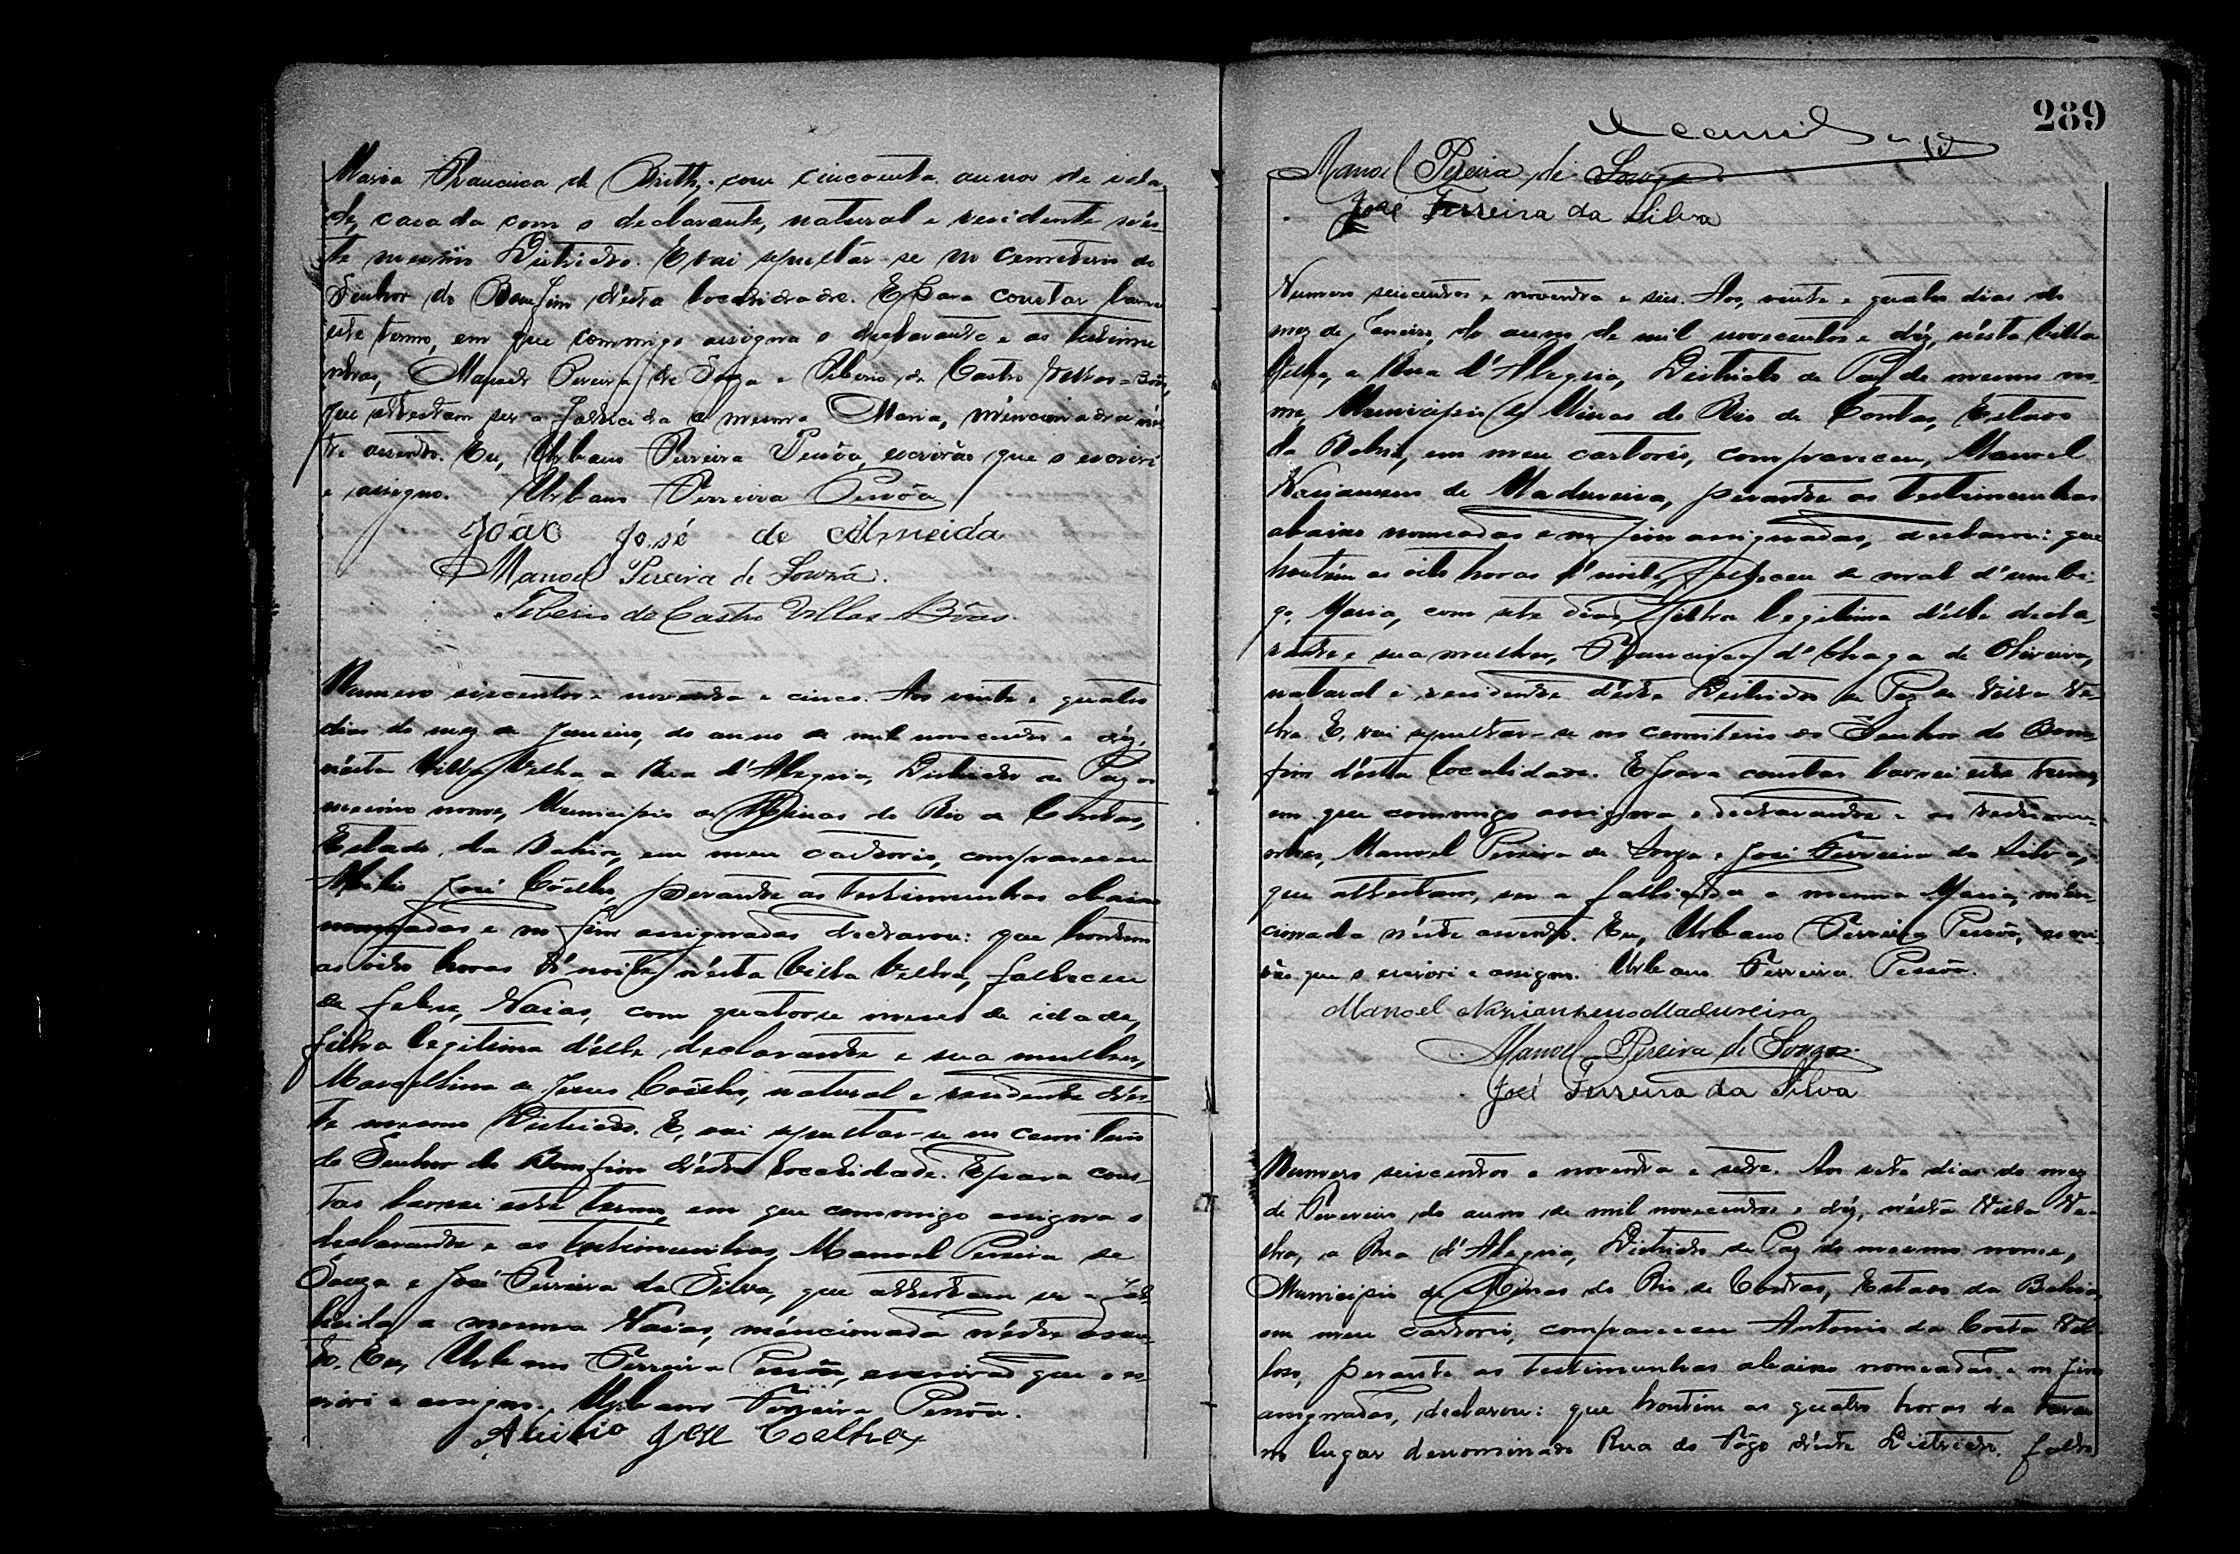 Maria Francisca de Britto, com cincoenta annos de ida-
de, casada com o declarante, natural e residente nés-
te mesmo Districto. E vai sepultar-se no Cemeterio do
Senhor do Bomfim d'ésta localidade. E para constar lavrei
este termo, em que commigo assigna o declarante e as testimu-
nhas, Manoel Pereira de Souza e Tiberio de Castro Villas-Bôas,
que attestam ser a fallecida a mesma Maria, méncionada nés-
te assento. Eu, Urbano Ferreira Pessôa, escrivão que o escrevi
e assigno. Urbano Ferreira Pessôa
João José de Almeida
Manoel Pereira de Souza.
Tiberio de Castro Villas-Bôas.
Numero seiscentos e noventa e cinco. Aos vinte e quatro
dias do mez de Janeiro, do anno de mil novecentos e déz,
nésta Villa Velha, a Rua d'Alegria, Districto de Paz do
mesmo nome, Municipio de Minas do Rio de Contas,
Estado da Bahia, em meu cartorio, compareceu
José Coêlho, perante as testimunhas abaixo
nomeadas e no fim assignadas declarou: que hontem
as oito horas d'noite n'ésta Villa Velha, falleceu
de febre, Naias, com quatorse meses de idade,
filha legitima d'elle declarante e sua mulher,
Marcellina de Jesus Coêlho, natural e residente nés-
te mesmo Districto. E, vai sepultar-se no cemiterio
do Senhor do Bomfim d'ésta localidade. E para cons-
tar lavrei este termo, em que commigo assigna o
declarante e as testimunhas, Manoel Pereira de
Souza e José Ferreira da Silva, que attestam ser a fal-
lecida a mesma Naias, méncionada n'éste assen-
to. Eu, Urbano Ferreira Pessôa, escrivão que o es-
crevi e assigno. Urbano Ferreira Pessôa.
José Coelho
289
Manoel Pereira de Souza
José Ferreira da Silva
Numero seiscentos e noventa e seis. Aos, vinte e quatro dias do
mez de Janeiro, do anno de mil novecentos e déz, nésta Villa
Velha, a Rua d'Alegria, Districto de Paz do mesmo no-
me, Municipio de Minas do Rio de Contas, Estado
da Bahia, em meu cartorio, compareceu, Manoel
de Madureira, perante as testimunhas
abaixo nomeadas e no fim assignadas, declarou: que
hontém as oito horas d'noite, falleceu de mal d'umbi-
go, Maria, com sete dias, filha legitima d'élle decla-
rante e sua mulher, Francisca d'Chaga de Oliveira,
natural e residente d'éste Districto de Paz de Villa Ve-
lha. E, vai sepultar-se no cemiterio do Senhor do Bom-
fim d'ésta localidade. E para constar lavrei este termo,
em que commigo assigna o declarante e as testimu-
nhas, Manoel Pereira de Souza e José Ferreira da Silva,
que attestam, ser a fallecida a mesma Maria, mén-
cionada n'éste assento. Eu, Urbano Ferreira Pessôa, escri-
vão que o escrevi e assigno. Urbano Ferreira Pessôa.
Manoel Madureira
Manoel Pereira de Souza.
José Ferreira da Silva
Numero seiscentos e noventa e sete. Aos sete dias do mez
de Fevereiro do anno de mil novecentos e déz, nésta Villa Ve-
lha, a Rua d'Alegria, Districto de Paz do mesmo nome,
Municipio de Minas do Rio de Contas, Estado da Bahia,
em meu cartorio, compareceu Antonio da Costa Vel-
loso, perante as testimunhas abaixo nomeadas e no fim
assignadas, declarou: que hontém as quatro horas da tarde
no lugar denominado Rua do Fôgo d'éste Districto, falle